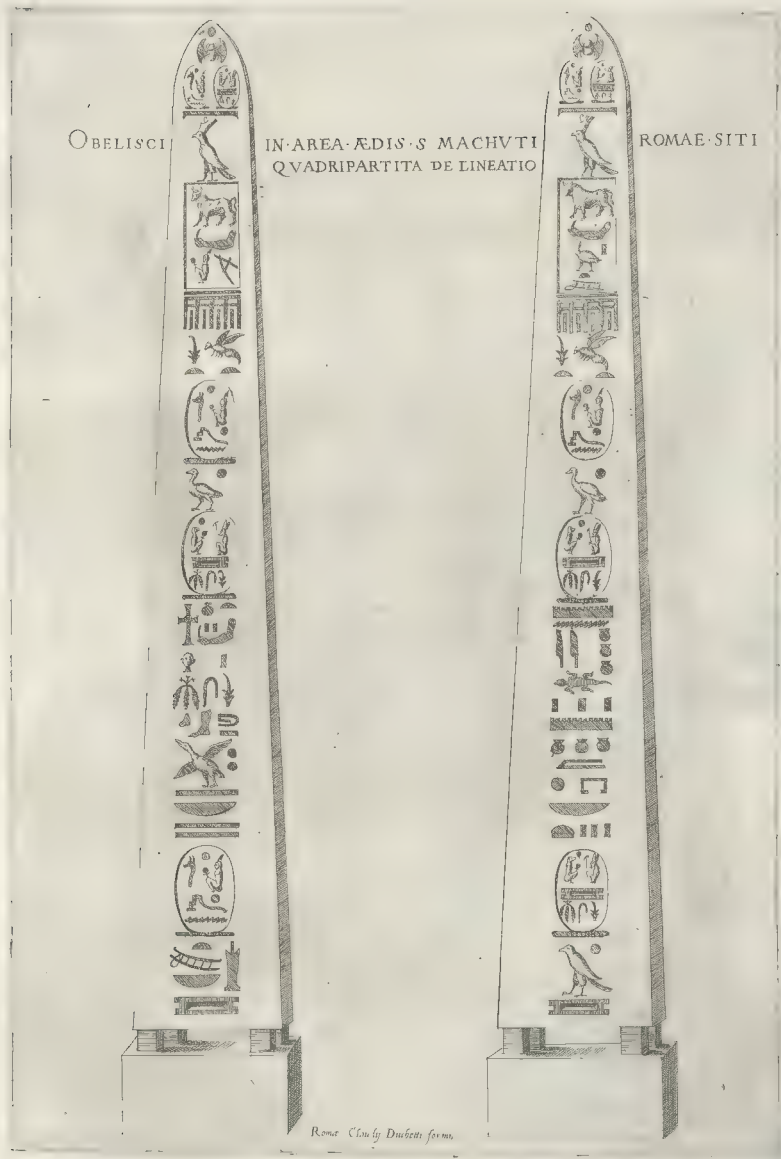 OBELISCI IN·AREA·ÆDIS·S MACHVTI ROMAE·SITI
QVADRIPARTITA DE LINEATIO
Romæ Claudij Duchetti formis